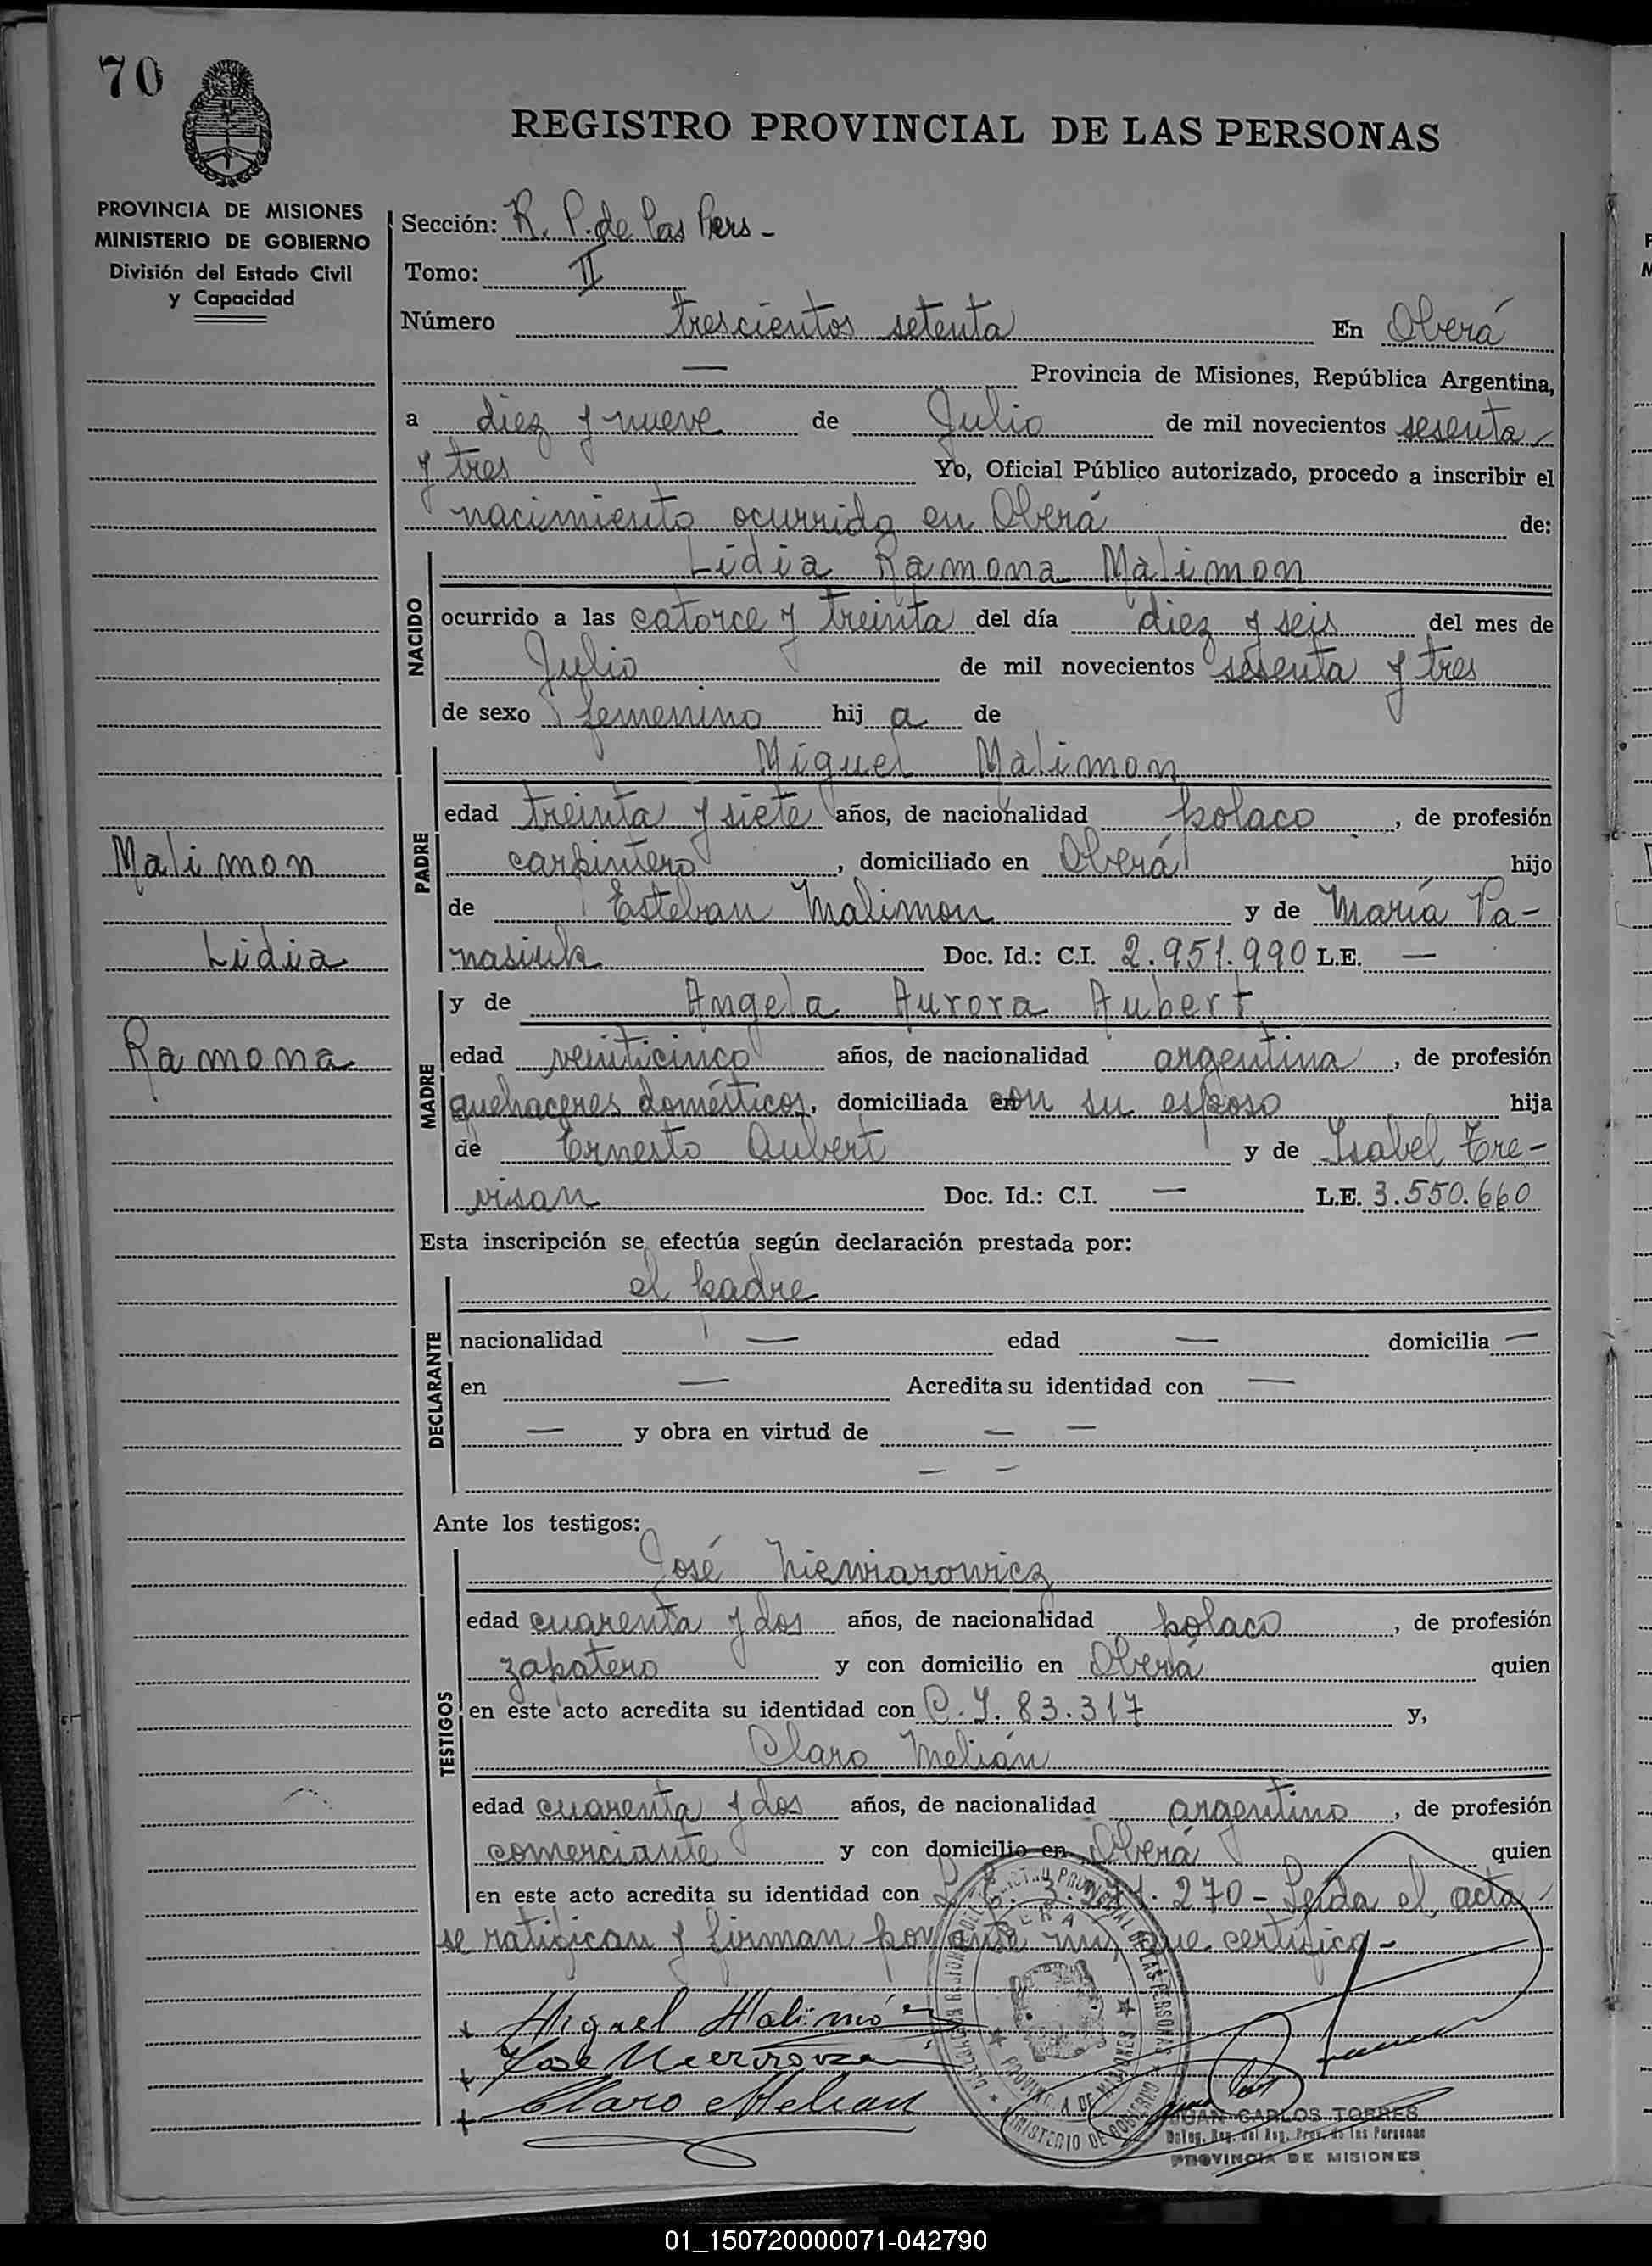 70
REGISTRO PROVINCIAL DE LAS PERSONAS
PROVINCIA DE MISIONES
MINISTERIO DE GOBIERNO
División del Estado Civil
y Capacidad
Sección: R. P. de las Pers -
Tomo: II
Número trescientos setenta En Oberá
— Provincia de Misiones, República Argentina,
a diez y nueve de Julio de mil novecientos sesenta
y tres Yo, Oficial Público autorizado, procedo a inscribir el
nacimiento ocurrido en Oberá de:
NACIDO
Lidia Ramona Malimon
ocurrido a las catorce y treinta del día diez y seis del mes de
Julio de mil novecientos sesenta y tres
de sexo femenino hij a de
PADRE
Miguel Malimon
edad treinta y siete años, de nacionalidad polaco, de profesión
carpintero, domiciliado en Oberá hijo
de Esteban Malimon y de María Pa-
nasiuk Doc. Id.: C.I. 2.951.990 L.E. —
Malimon
Lidia
Ramona
MADRE
y de Angela Aurora Aubert
edad veinticinco años, de nacionalidad argentina, de profesión
quehaceres domésticos, domiciliada con su esposo hija
de Ernesto Aubert y de Isabel Tre-
visan Doc. Id.: C.I. — L.E. 3.550.660
Esta inscripción se efectúa según declaración prestada por:
DECLARANTE
el padre
nacionalidad — edad — domicilia —
en — Acredita su identidad con —
— y obra en virtud de — —
— —
Ante los testigos:
TESTIGOS
José Niewiarowicz
edad cuarenta y dos años, de nacionalidad polaco, de profesión
zapatero y con domicilio en Oberá quien
en este acto acredita su identidad con C.I. 83.317 y,
Claro Melián
edad cuarenta y dos años, de nacionalidad argentino, de profesión
comerciante y con domicilio en Oberá quien
en este acto acredita su identidad con 270 - Leida el acta
se ratifican y firman por ante mi, que certifico -
Miguel Malimón
José
Claro Melian
JUAN CARLOS TORRES
Deleg. Reg. del Reg. Prov. de las Personas
PROVINCIA DE MISIONES
01_150720000071-042790